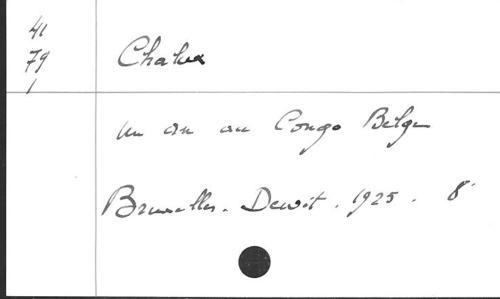 41
79
1
Chalux
un an au Congo Belge
Bruxelles. Dewit. 1925. 8°